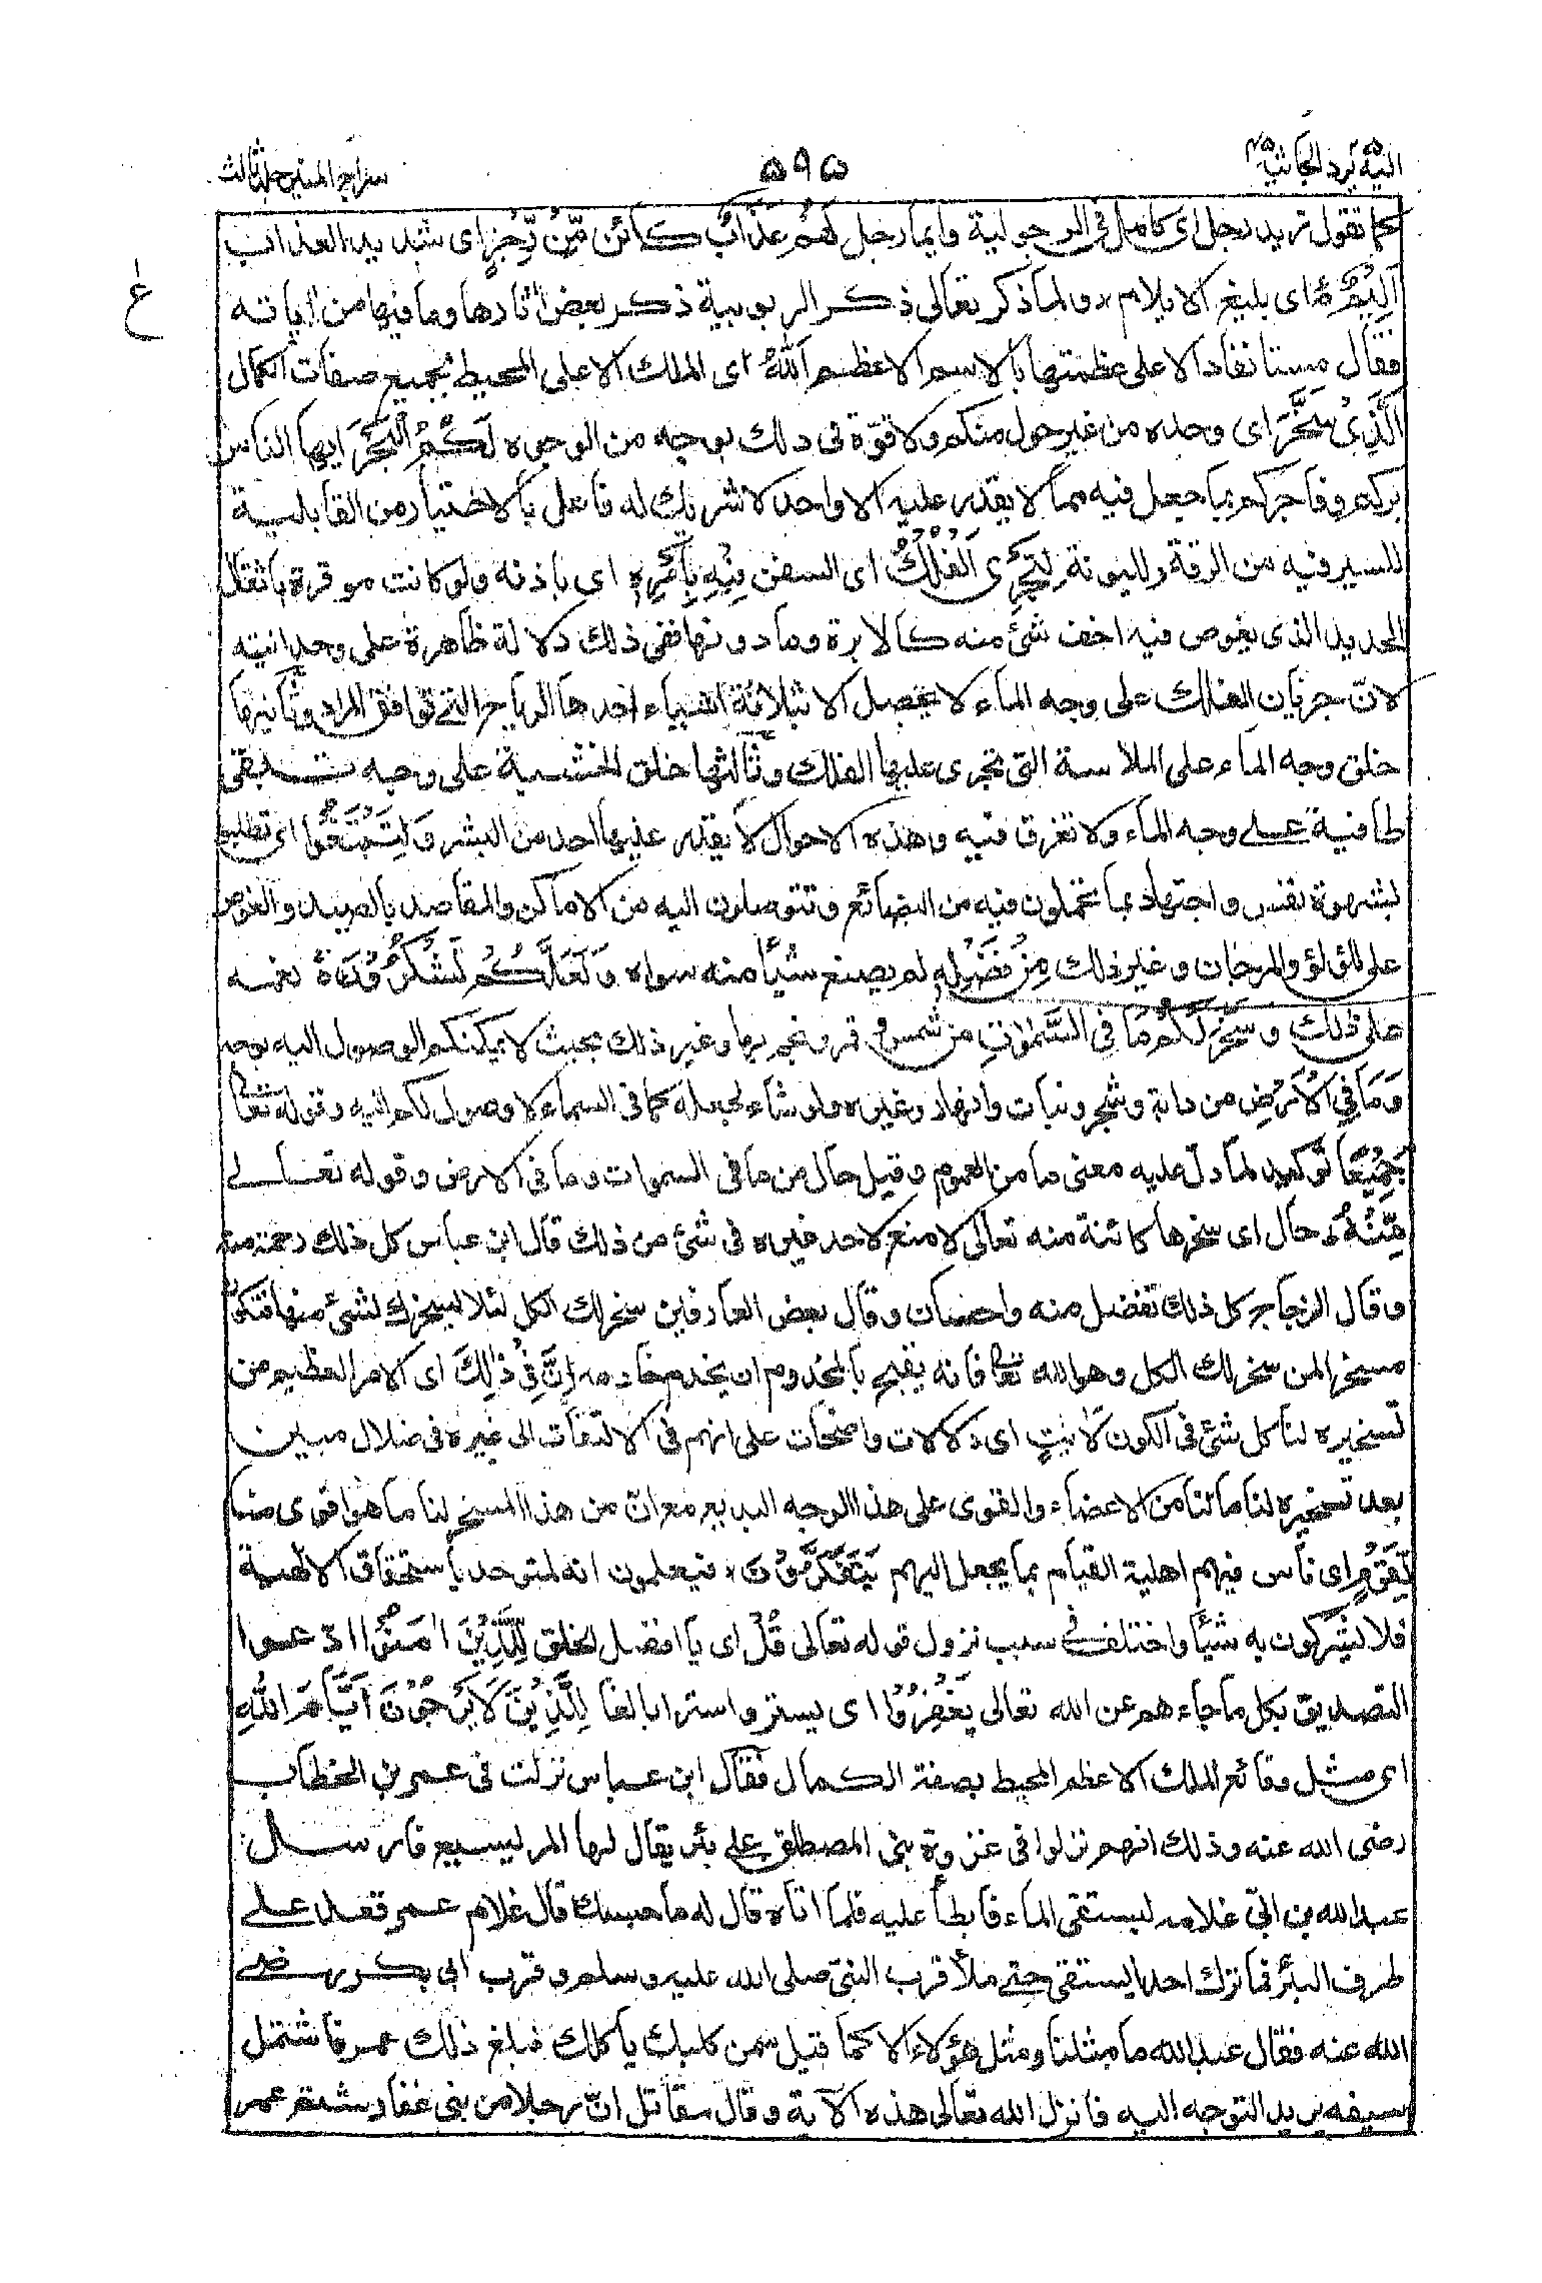 اليه يرد الجاثية ٤٥
٥٩٥
سراج المنير جلد ثالث
كما تقول تريد رجل اى كامل فى الرجولية وايما رجل لَهُمْ عَذَابٌ كائن مِّنْ رِّجْزٍ اى شديد العذاب
اَلِيْمٌ اى بليغ الايلام ولما ذكر تعالى ذكر الربوبية ذكر بعض اثارها وما فيها من اياته
فقال مستانفا دالا على عظمتها بالاسم الاعظم اَللّٰهُ اى الملك الاعلى المحيط بجميع صفات الكمال
الَّذِىْ سَخَّرَ اى وحده من غير حول منكم ولا قوّة فى ذلك بوجه من الوجوه لَكُمُ الْبَحْرَ ايها الناس
بركم وفاجركم بما جعل فيه مما لا يقدر عليه الا واحد لا شريك له فاعل بالاختيار من القابلية
للسير فيه من الرقة والليونة لِتَجْرِىَ الْفُلْكُ اى السفن فِيْهِ بِاَمْرِهٖ اى باذنه ولو كانت موقرة باثقال
الحديد الذى يغوص فيه اخف شئ منه كالابرة وما دونها ففى ذلك دلالة ظاهرة على وحدانيته
لانّ جريان الفلك على وجه الماء لا يحصل الا بثلاثة اشياء احدها الرياح التى توافق المراد وثانيها
خلق وجه الماء على الملاسة التى تجرى عليها الفلك وثالثها خلق الخشبة على وجه تبقى
طافية على وجه الماء ولا تغرق فيه وهذه الاحوال لا يقدر عليها احد من البشر وَلِتَبْتَغُوْا اى تطلبوا
بشهوة نفس واجتهاد بما تحملون فيه من البضائع وتتوصلون اليه من الاماكن والمقاصد بالصيد والغوص
على اللؤلؤ والمرجان وغير ذلك مِنْ فَضْلِهٖ لم يصنع شيأ منه سواه وَلَعَلَّكُمْ تَشْكُرُوْنَ نعمه
على ذلك وسَخَّرَ لَكُمْ مَا فِى السَّمٰوٰتِ من شمس وقمر ونجم وغير ذلك بحيث لا يمكنكم الوصول اليه بوجه
وَمَا فِى الْاَرْضِ من دابة وشجر ونبات وانهار وغيره ولو شاء لجعله كما فى السماء لا وصول لكم اليه وقوله تعا
جَمِيْعًا توكيد لما دل عليه معنى ما من العموم وقيل حال من ما فى السموات وما فى الارض وقوله تعالى
مِّنْهُ حال اى سخرها كائنة منه تعالى لا منع لاحد غيره فى شئ من ذلك قال ابن عباس كل ذلك رحمة منه
وقال الزجاج كل ذلك تفضل منه واحسان وقال بعض العارفين سخر لك الكل لئلا يسخرك لشئ منها فتكون
مسخرا لمن سخر لك الكل وهو الله تعا فانه يقبح بالمخدوم ان يخدم خادمه اِنَّ فِىْ ذٰلِكَ اى الامر العظيم من
تسخيره لنا كل شئ فى الكون لَاٰيٰتٍ اى دلالات واضحات على انهم فى الالتفات الى غيره فى ضلال مبين
بعد تسخيره لنا ما لنا من الاعضاء والقوى على هذا الوجه البديع مع ان من هذا المسخر لنا ما هو اقوى منا
لِّقَوْمٍ اى ناس فيهم اهلية القيام بما يجعل اليهم يَّتَفَكَّرُوْنَ فيعلمون انه المتوحد باستحقاق الالهية
فلا يشركون به شيأ واختلف فى سبب نزول قوله تعالى قُلْ اى يا افضل الخلق لِّلَّذِيْنَ اٰمَنُوْا ادعوا
التصديق بكل ما جاءهم عن الله تعالى يَغْفِرُوْا اى يستروا سترا بالغا لِلَّذِيْنَ لَا يَرْجُوْنَ اَيَّامَ اللّٰهِ
اى مثل وقائع الملك الاعظم المحيط بصفة الكمال فقال ابن عباس نزلت فى عمر بن الخطاب
رضى الله عنه وذلك انهم نزلوا فى غزوة بنى المصطلق على بئر يقال لها المريسيع فارسل
عبد الله بن ابىّ غلامه ليستقى الماء فابطأ عليه فلما اتاه قال له ما حبسك قال غلام عمر قعد على
طرف البئر فما ترك احدا يستقى حتى ملأ قرب النبى صلى الله عليه وسلم وقرب ابى بكر رضى
الله عنه فقال عبد الله ما مثلنا ومثل هؤلاء الا كما قيل سمن كلبك ياكلك فبلغ ذلك عمر فاشتمل
بسيفه يريد التوجه اليه فانزل الله تعالى هذه الآية وقال مقاتل انّ رجلا من بنى غفار شتم عمر
ع